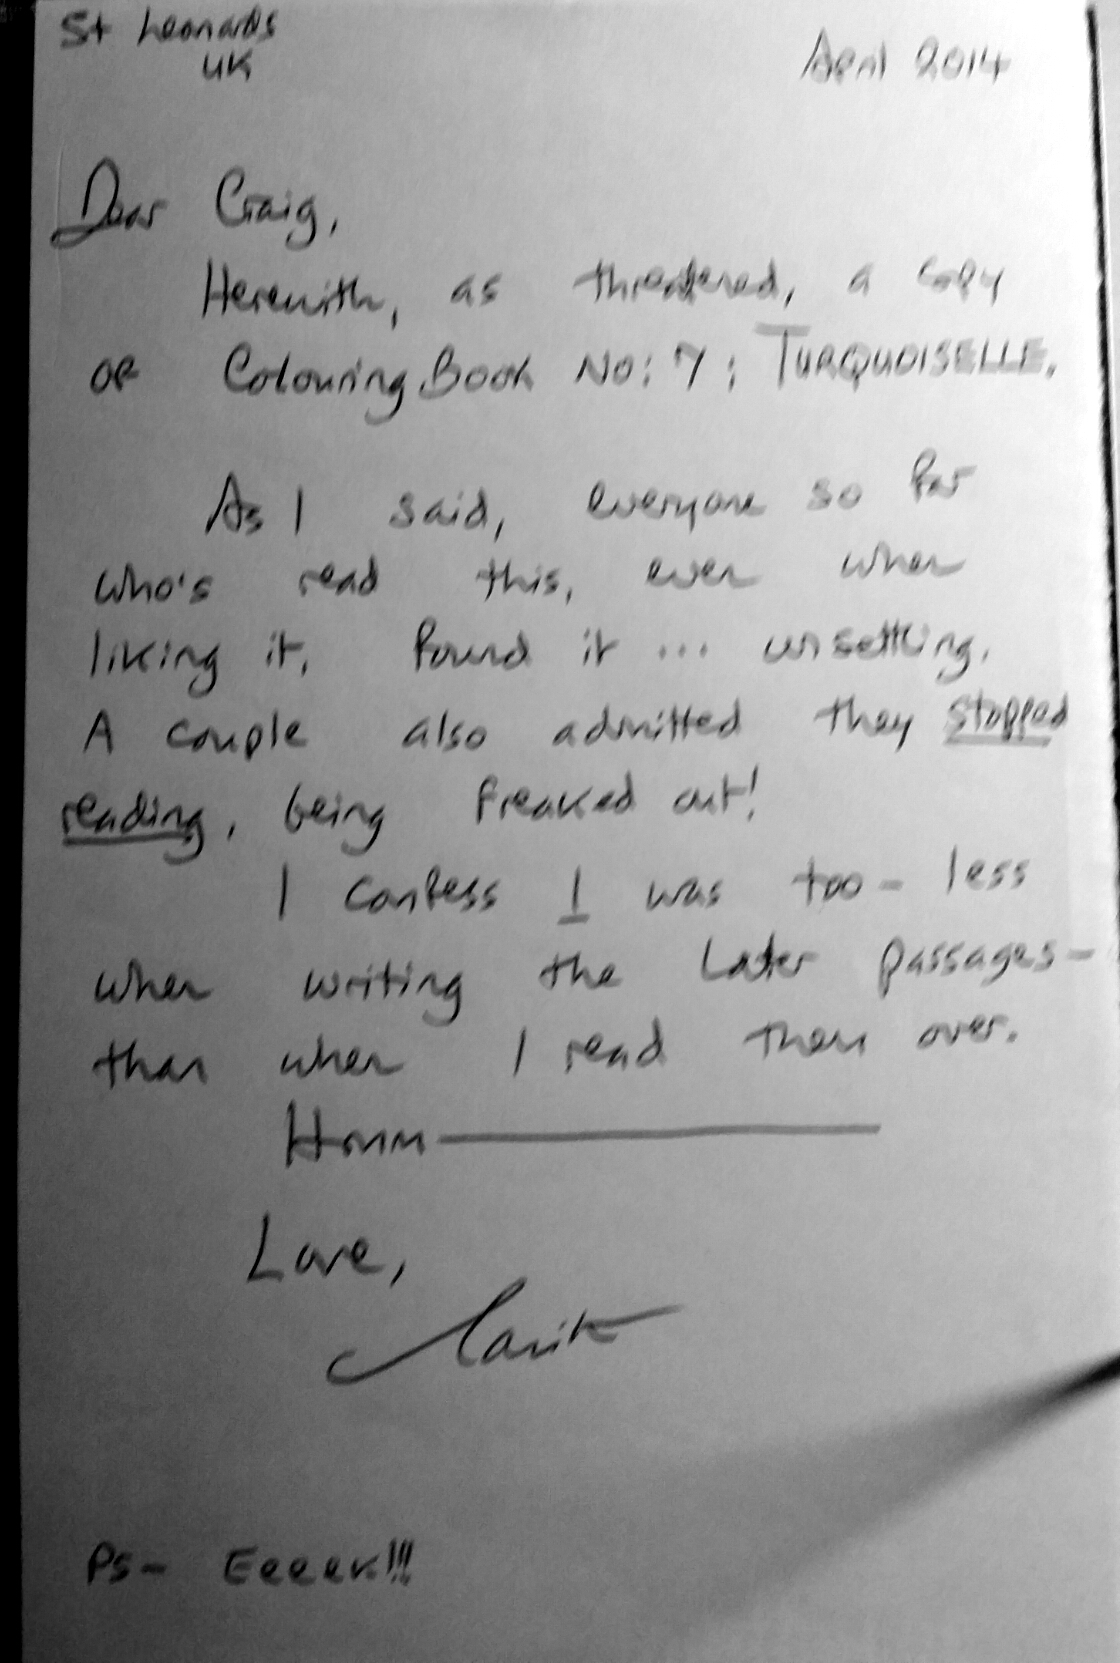 St Leonards
UK
April 2014
Dear Craig,
Herewith, as threatened, a copy
of Colouring Book No: 7: TURQUOISELLE.
As I said, everyone so far
who's read this, even when
liking it, found it ... unsettling.
A couple also admitted they stopped
reading, being freaked out!
I confess I was too - less
when writing the later passages -
than when I read them over.
Hmm
Love,
Tanith
PS- Eeeek!!!